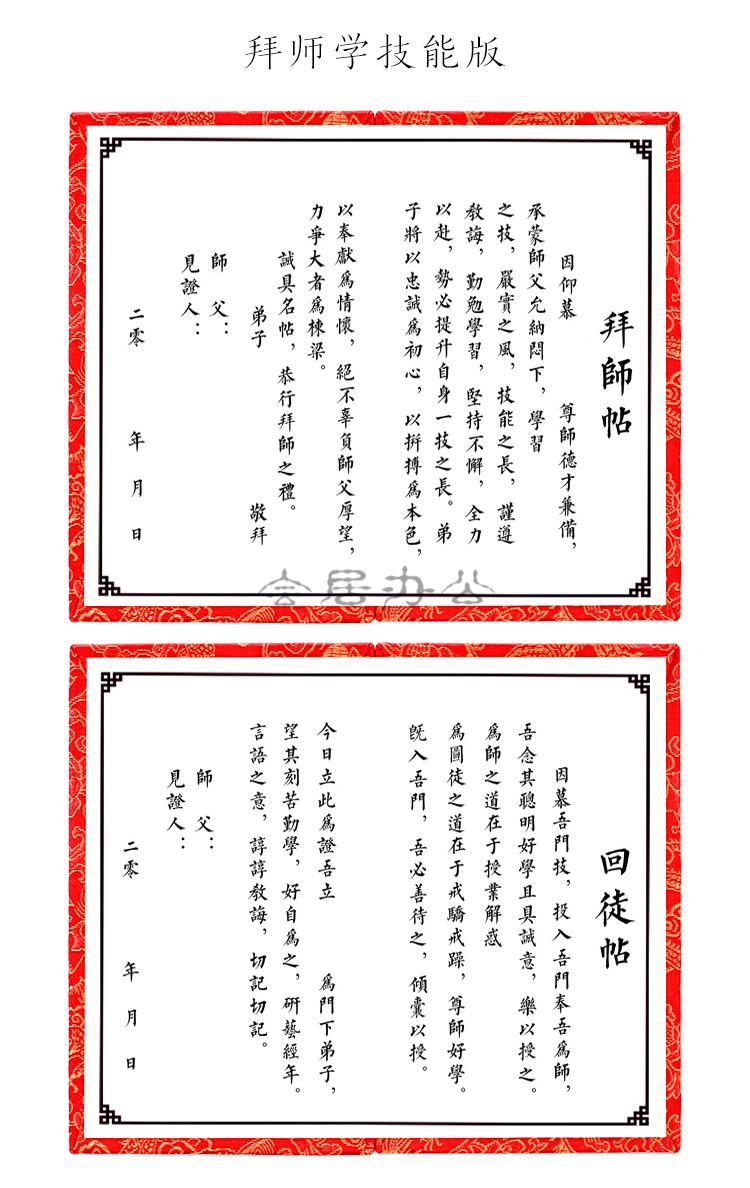 拜师学技能版
拜師帖
因仰慕 尊師德才兼備，
承蒙師父允納門下，學習
之技，嚴實之風，技能之長，謹遵
教誨，勤勉學習，堅持不懈，全力
以赴，勢必提升自身一技之長。弟
子將以忠誠爲初心，以拚搏爲本色，
以奉獻爲情懷，絕不辜負師父厚望，
力爭大者爲棟梁。
誠具名帖，恭行拜師之禮。
弟子 敬拜
師父：
見證人：
二零 年 月 日
会居办公
回徒帖
因慕吾門技，投入吾門奉吾爲師，
吾念其聰明好學且具誠意，樂以授之。
爲師之道在于授業解惑
爲圖徒之道在于戒驕戒躁，尊師好學。
既入吾門，吾必善待之，傾囊以授。
今日立此爲證吾立 爲門下弟子，
望其刻苦勤學，好自爲之，研藝經年。
言語之意，諄諄教誨，切記切記。
師父：
見證人：
二零 年 月 日